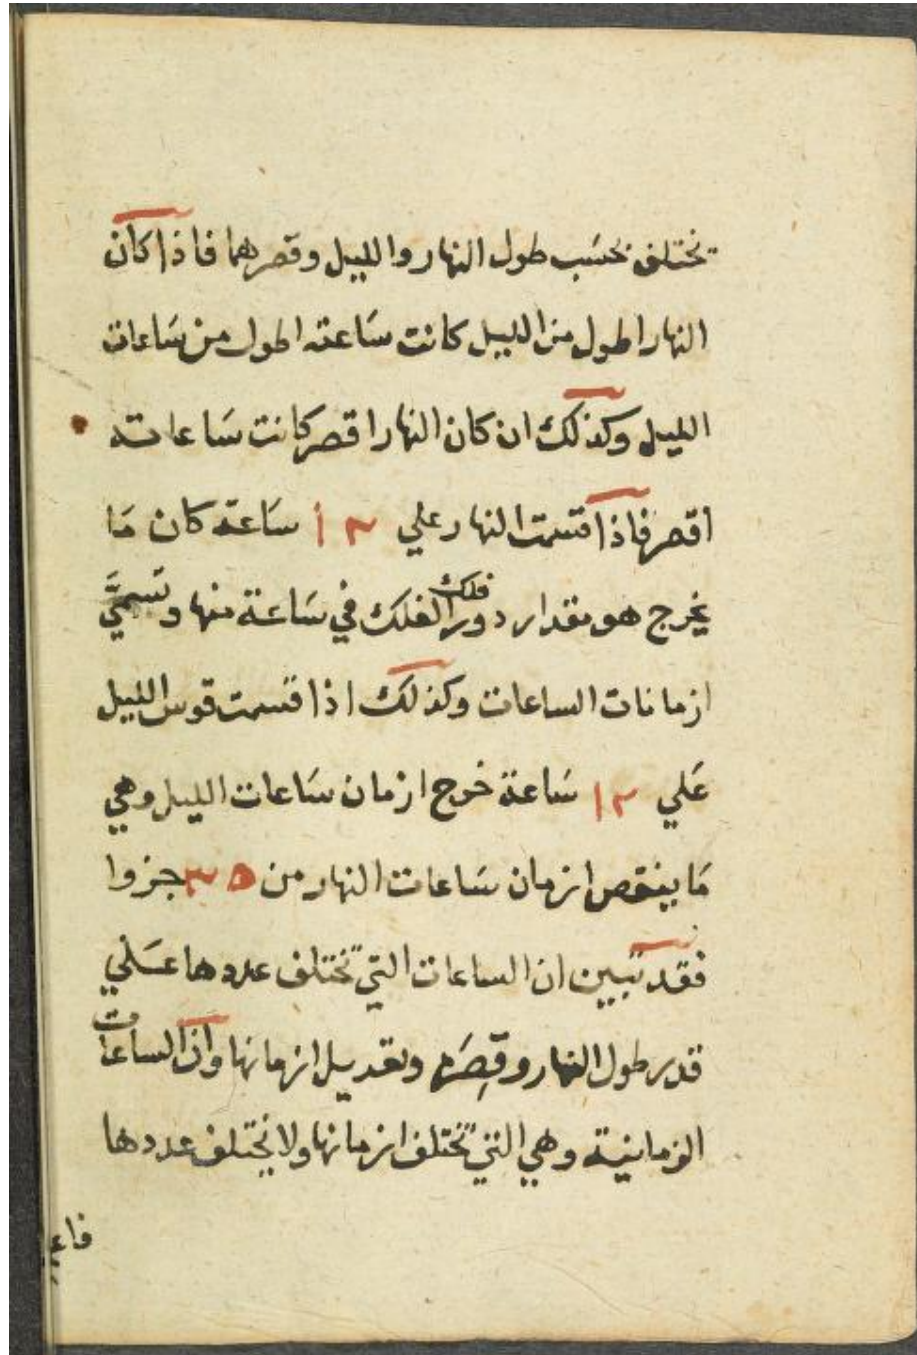 تختلف بحسَب طول النهار والليل وقصرهما فاذا كان
النهار اطول من الليل كانت سَاعته اطول من سَاعات
الليل وكذلك ان كان النهار اقصر كانت سَاعاته
اقصر فاذا قسمت النهار علي ١٢ سَاعة كان مَا
يخرج هو مقدار دور فلك الفلك في سَاعة منها وتسميَّ
ازمانات الساعات وكذلك اذا قسمت قوس الليل
عَلي ١٢ سَاعة خرج ازمان سَاعات الليل وهي
مَا ينقص ازمان سَاعات النهار من ٣٥ جزوا
فقد تبين ان الساعات التي تختلف عددها عَلي
قدر طول النهار وقِصَره وتعديل ازمانها وان الساعات
الزمانية وهي التي تختلف ازمانها ولا يختلف عددها